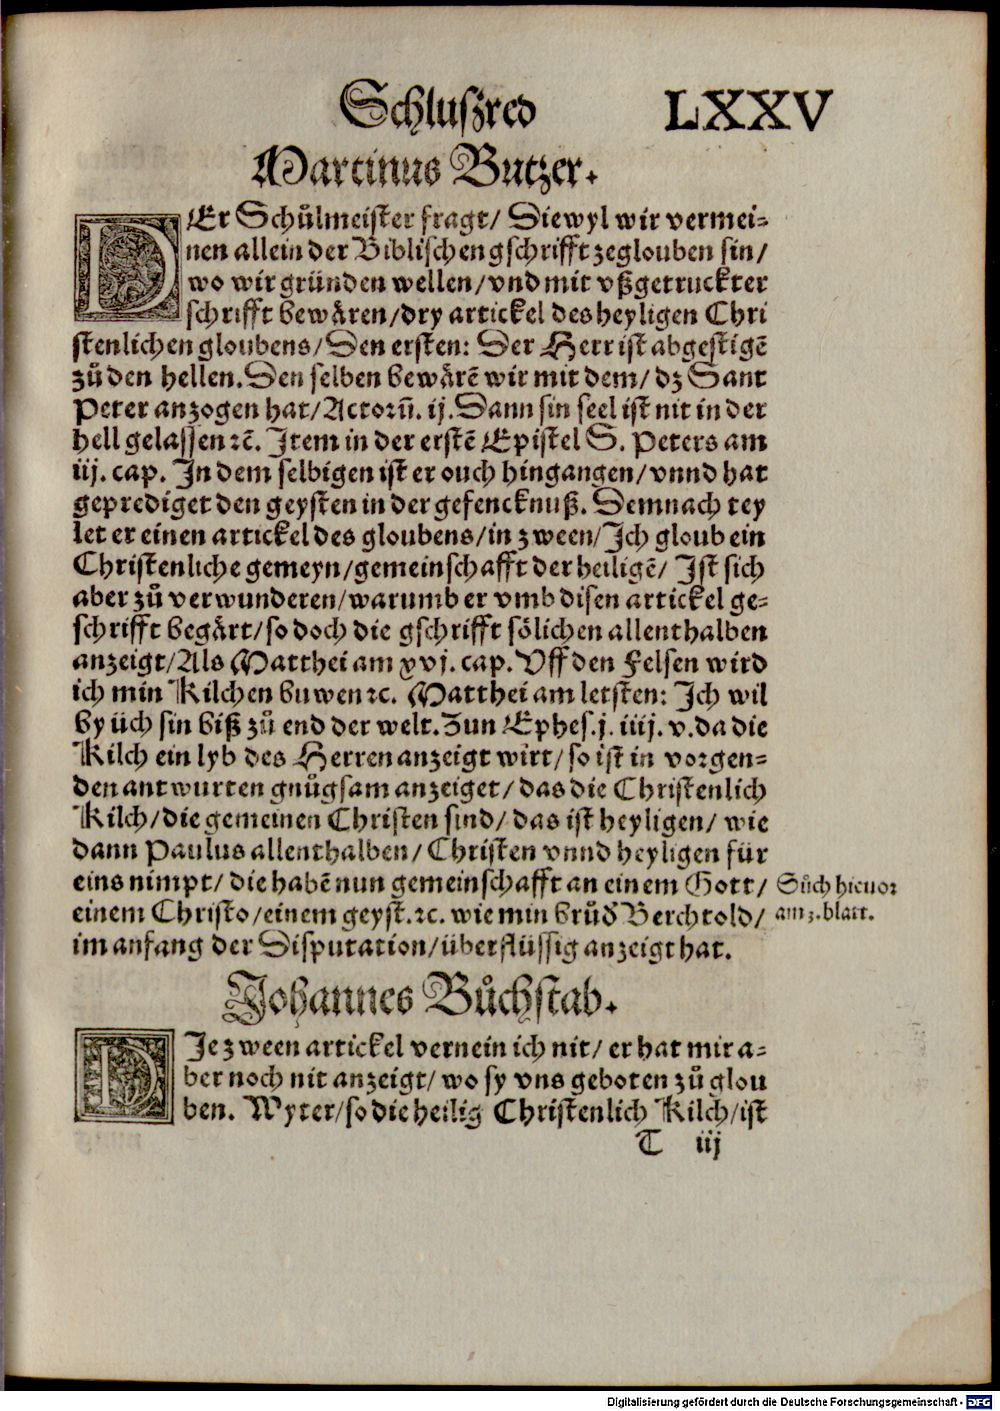 Schlußred LXXV
Martinus Butzer.
DEr Schůlmeister fragt/ Diewyl wir vermei⸗
nen allein der Biblischen gschrifft zeglouben sin/
wo wir gründen wellen/vnd mit vßgetruckter
schrifft bewären/dry artickel des heyligen Chri
stenlichen gloubens/Den ersten: Der Herr ist abgestigẽ
zů den hellen. Den selben bewärẽ wir mit dem/ dz Sant
Peter anzogen hat/Actorũ. ij. Dann sin seel ist nit in der
hell gelassen ꝛcẽ. Item in der erstẽ Epistel S. Peters am
iij. cap. In dem selbigen ist er ouch hingangen/vnnd hat
geprediget den geysten in der gefencknuß. Demnach tey
let er einen artickel des gloubens/in zween/Ich gloub ein
Christenliche gemeyn/gemeinschafft der heiligẽ/ Ist sich
aber zů verwunderen/warumb er vmb disen artickel ge⸗
schrifft begärt/so doch die gschrifft sölichen allenthalben
anzeigt/Als Matthei am xvj. cap. Vff den Felsen wird
ich min Kilchen buwen ꝛc. Matthei am letsten: Ich wil
by üch sin biß zů end der welt. Zun Ephes. j. iiij. v. da die
Kilch ein lyb des Herren anzeigt wirt/ so ist in vorgen⸗
den antwurten gnůgsam anzeiget/ das die Christenlich
Kilch/die gemeinen Christen sind/ das ist heyligen/ wie
dann Paulus allenthalben/ Christen vnnd heyligen für
eins nimpt/ die habẽ nun gemeinschafft an einem Gott/
einem Christo/einem geyst. ꝛc. wie min brůd̃ Berchtold/
im anfang der Disputation/überflüssig anzeigt hat.
Sůch hieuor
am z. blatt.
Johannes Bůchstab.
DIe zween artickel vernein ich nit/ er hat mir a⸗
ber noch nit anzeigt/ wo sy vns geboten zů glou
ben. Wyter/so die heilig Christenlich Kilch/ist
T iij
Digitalisierung gefördert durch die Deutsche Forschungsgemeinschaft - DFG